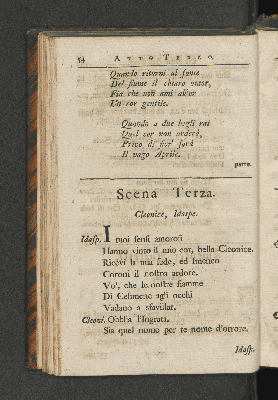 54 ATTO TERZO.
Quando ritorni al fonte
Del fiume il chiaro umor,
Fia che non ami allor
Un cor gentile.
Quando a due begli rai
Quel cor non arderà,
Privo di fior sarà
Il vago Aprile.
parte.
Scena Terza.
Cleonice, Idaspe.
Idasp. I tuoi sensi amorosi
Hanno vinto il mio cor, bella Cleonice.
Ricevi la mia fede, ed Imeneo
Coroni il nostro ardore.
Vo', che le nostre fiamme
Di Celmene agli occhi
Vadano a sfavillar.
Cleoni. Obblia l'Ingrata.
Sia quel nome per te nome d'orrore.
Idasp.